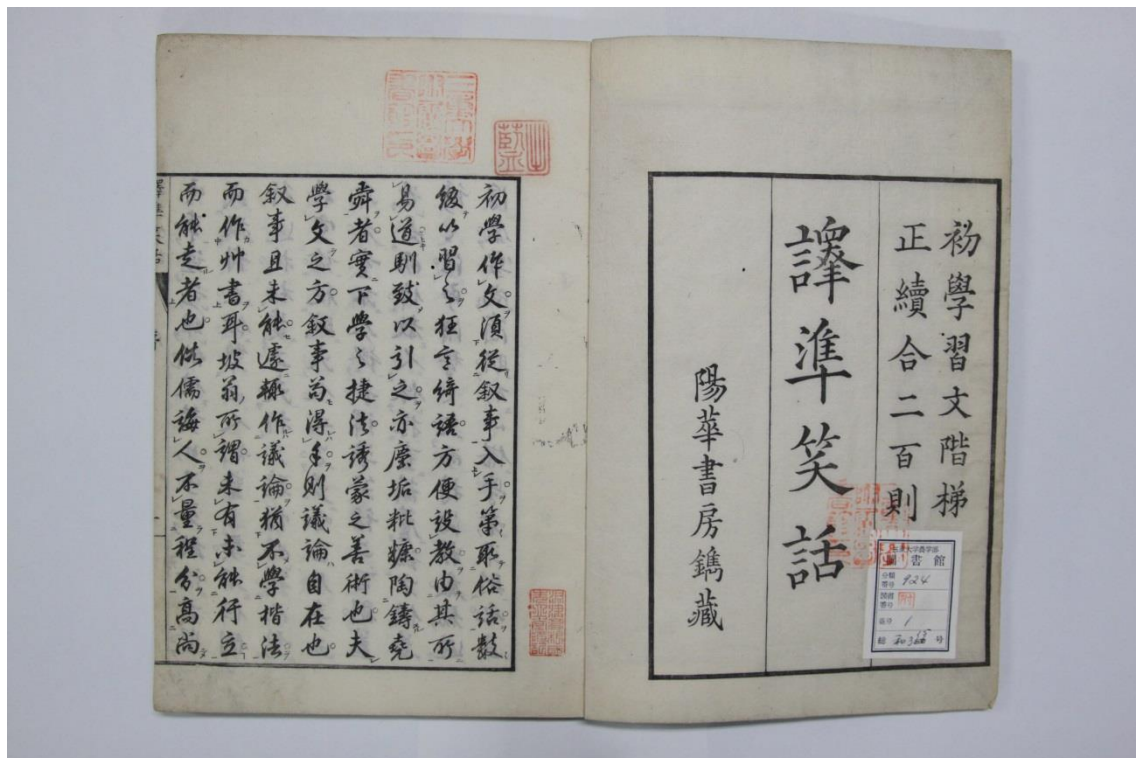 初學習文階梯
正續合二百則
譯準笑話
陽華書房鐫藏
圖書館
924
1
初學作文須從叙事入手第取俗話數
綴以習之狂言綺語方便設教由其所
易道馴致以引之亦塵垢粃糠陶鑄堯
舜者實下學之捷法誘蒙之善術也夫
學文之方叙事為得手則議論自在也
叙事且未能遽輒作議論猶不學楷法
而作艸書耳坡翁所謂未有未能行立
而能走者也俗儒誨人不量程分高尚